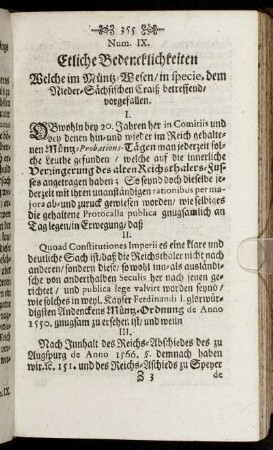 355
Num. IX.
Etliche Bedencklichkeiten
Welche im Müntz-Wesen/ in specie, dem
Nieder-Sächsischen Craiß betreffend/
vorgefallen.
I.
OBwohln bey 20. Jahren her in Comitiis und
bey denen hin- und wieder im Reich gehalte-
nen Müntz-Probations-Tägen man jederzeit sol-
che Leuthe gefunden / welche auf die innerliche
Verringerung des alten Reichsthalers-Fus-
ses angetragen haben; So seynd doch dieselbe je-
derzeit mit ihren unanständigen rationibus per ma-
jora ab- und zuruck gewiesen worden/ wie selbiges
die gehaltene Protocalla publica gnugsamlich an
Tag legen/ in Erwegung/ daß
II.
Quoad Constitutiones Imperii es eine klare und
deutliche Sach ist/ daß die Reichsthaler nicht nach
anderen/ sondern diese/ so wohl inn- als ausländi-
sche von anderthalben Seculis her nach jenen ge-
richtet / und publica lege valvirt worden seynd/
wie solches in weyl. Kayser Ferdinandi I. glorwür-
digsten Andenckens Müntz-Ordnung de Anno
1550. gnugsam zu ersehen ist/ und weiln
III.
Nach Innhalt des Reichs-Abschiedes des zu
Augspurg de Anno 1566. §. demnach haben
wir. ꝛc. 151. und des Reichs-Aschieds zu Speyer
Z 3
de
o.IX.